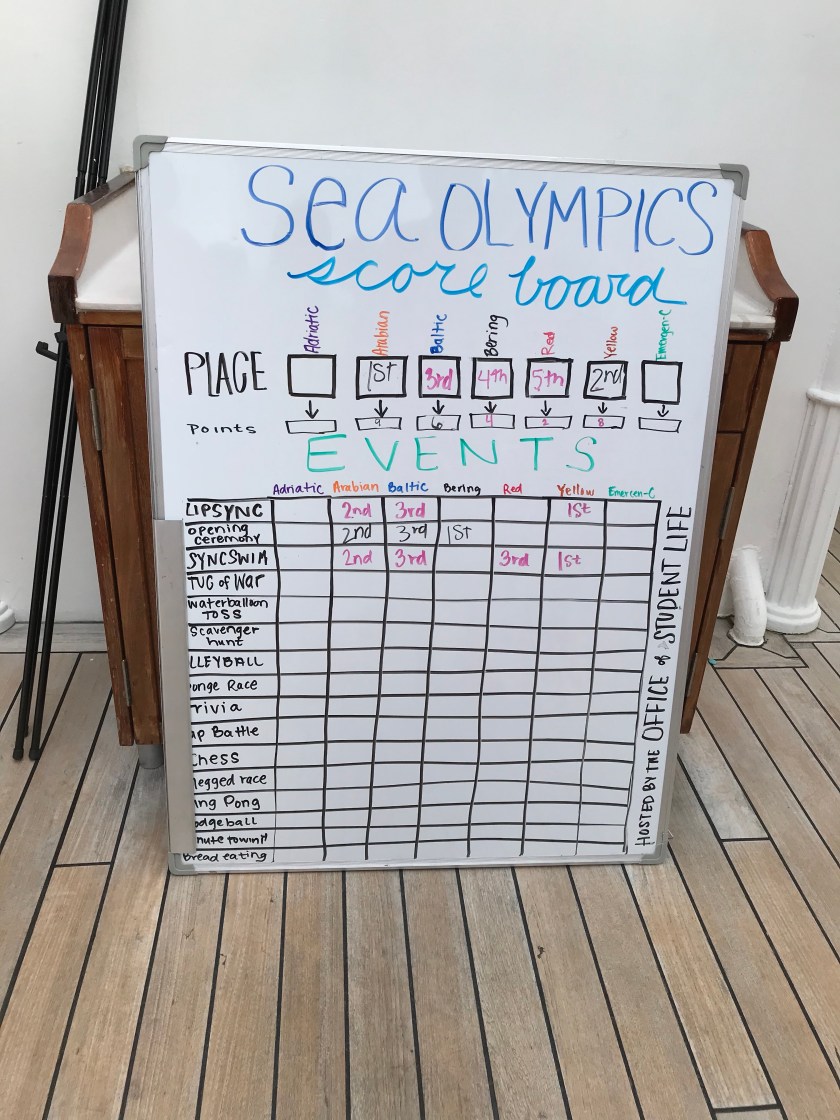 Sea OLYMPICS
score board
Adriatic Arabian Baltic Bering Red Yellow Emergen-C
PLACE 1st 3rd 4th 5th 2nd
Points 9 6 4 2 8
EVENTS
Adriatic Arabian Baltic Bering Red Yellow Emercen-C
LIPSYNC 2nd 3rd 1st
opening
ceremony 2nd 3rd 1st
SYNCSWIM 2nd 3rd 3rd 1st
TUG of WAR
waterballoon
TOSS
scavenger
hunt
LLEYBALL
onge Race
rivia
ap Battle
Chess
legged race
ing Pong
odgeball
nute to win it
bread eating
HOSTED BY THE OFFICE of STUDENT LIFE